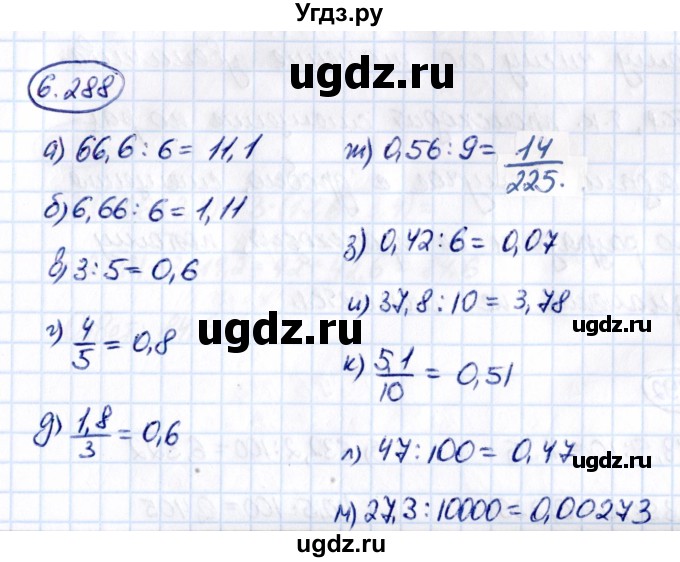 Угдз.ру
ugdz.ru
6.288
а) 66,6 : 6 = 11,1
б) 6,66 : 6 = 1,11
в) 3 : 5 = 0,6
г) 4/5 = 0,8
д) 1,8/3 = 0,6
ж) 0,56 : 9 = 14/225.
з) 0,42 : 6 = 0,07
и) 37,8 : 10 = 3,78
ugdz.ru
ugdz.ru
к) 5,1/10 = 0,51
л) 47 : 100 = 0,47
ugdz.ru
м) 27,3 : 10000 = 0,00273
ugdz.ru